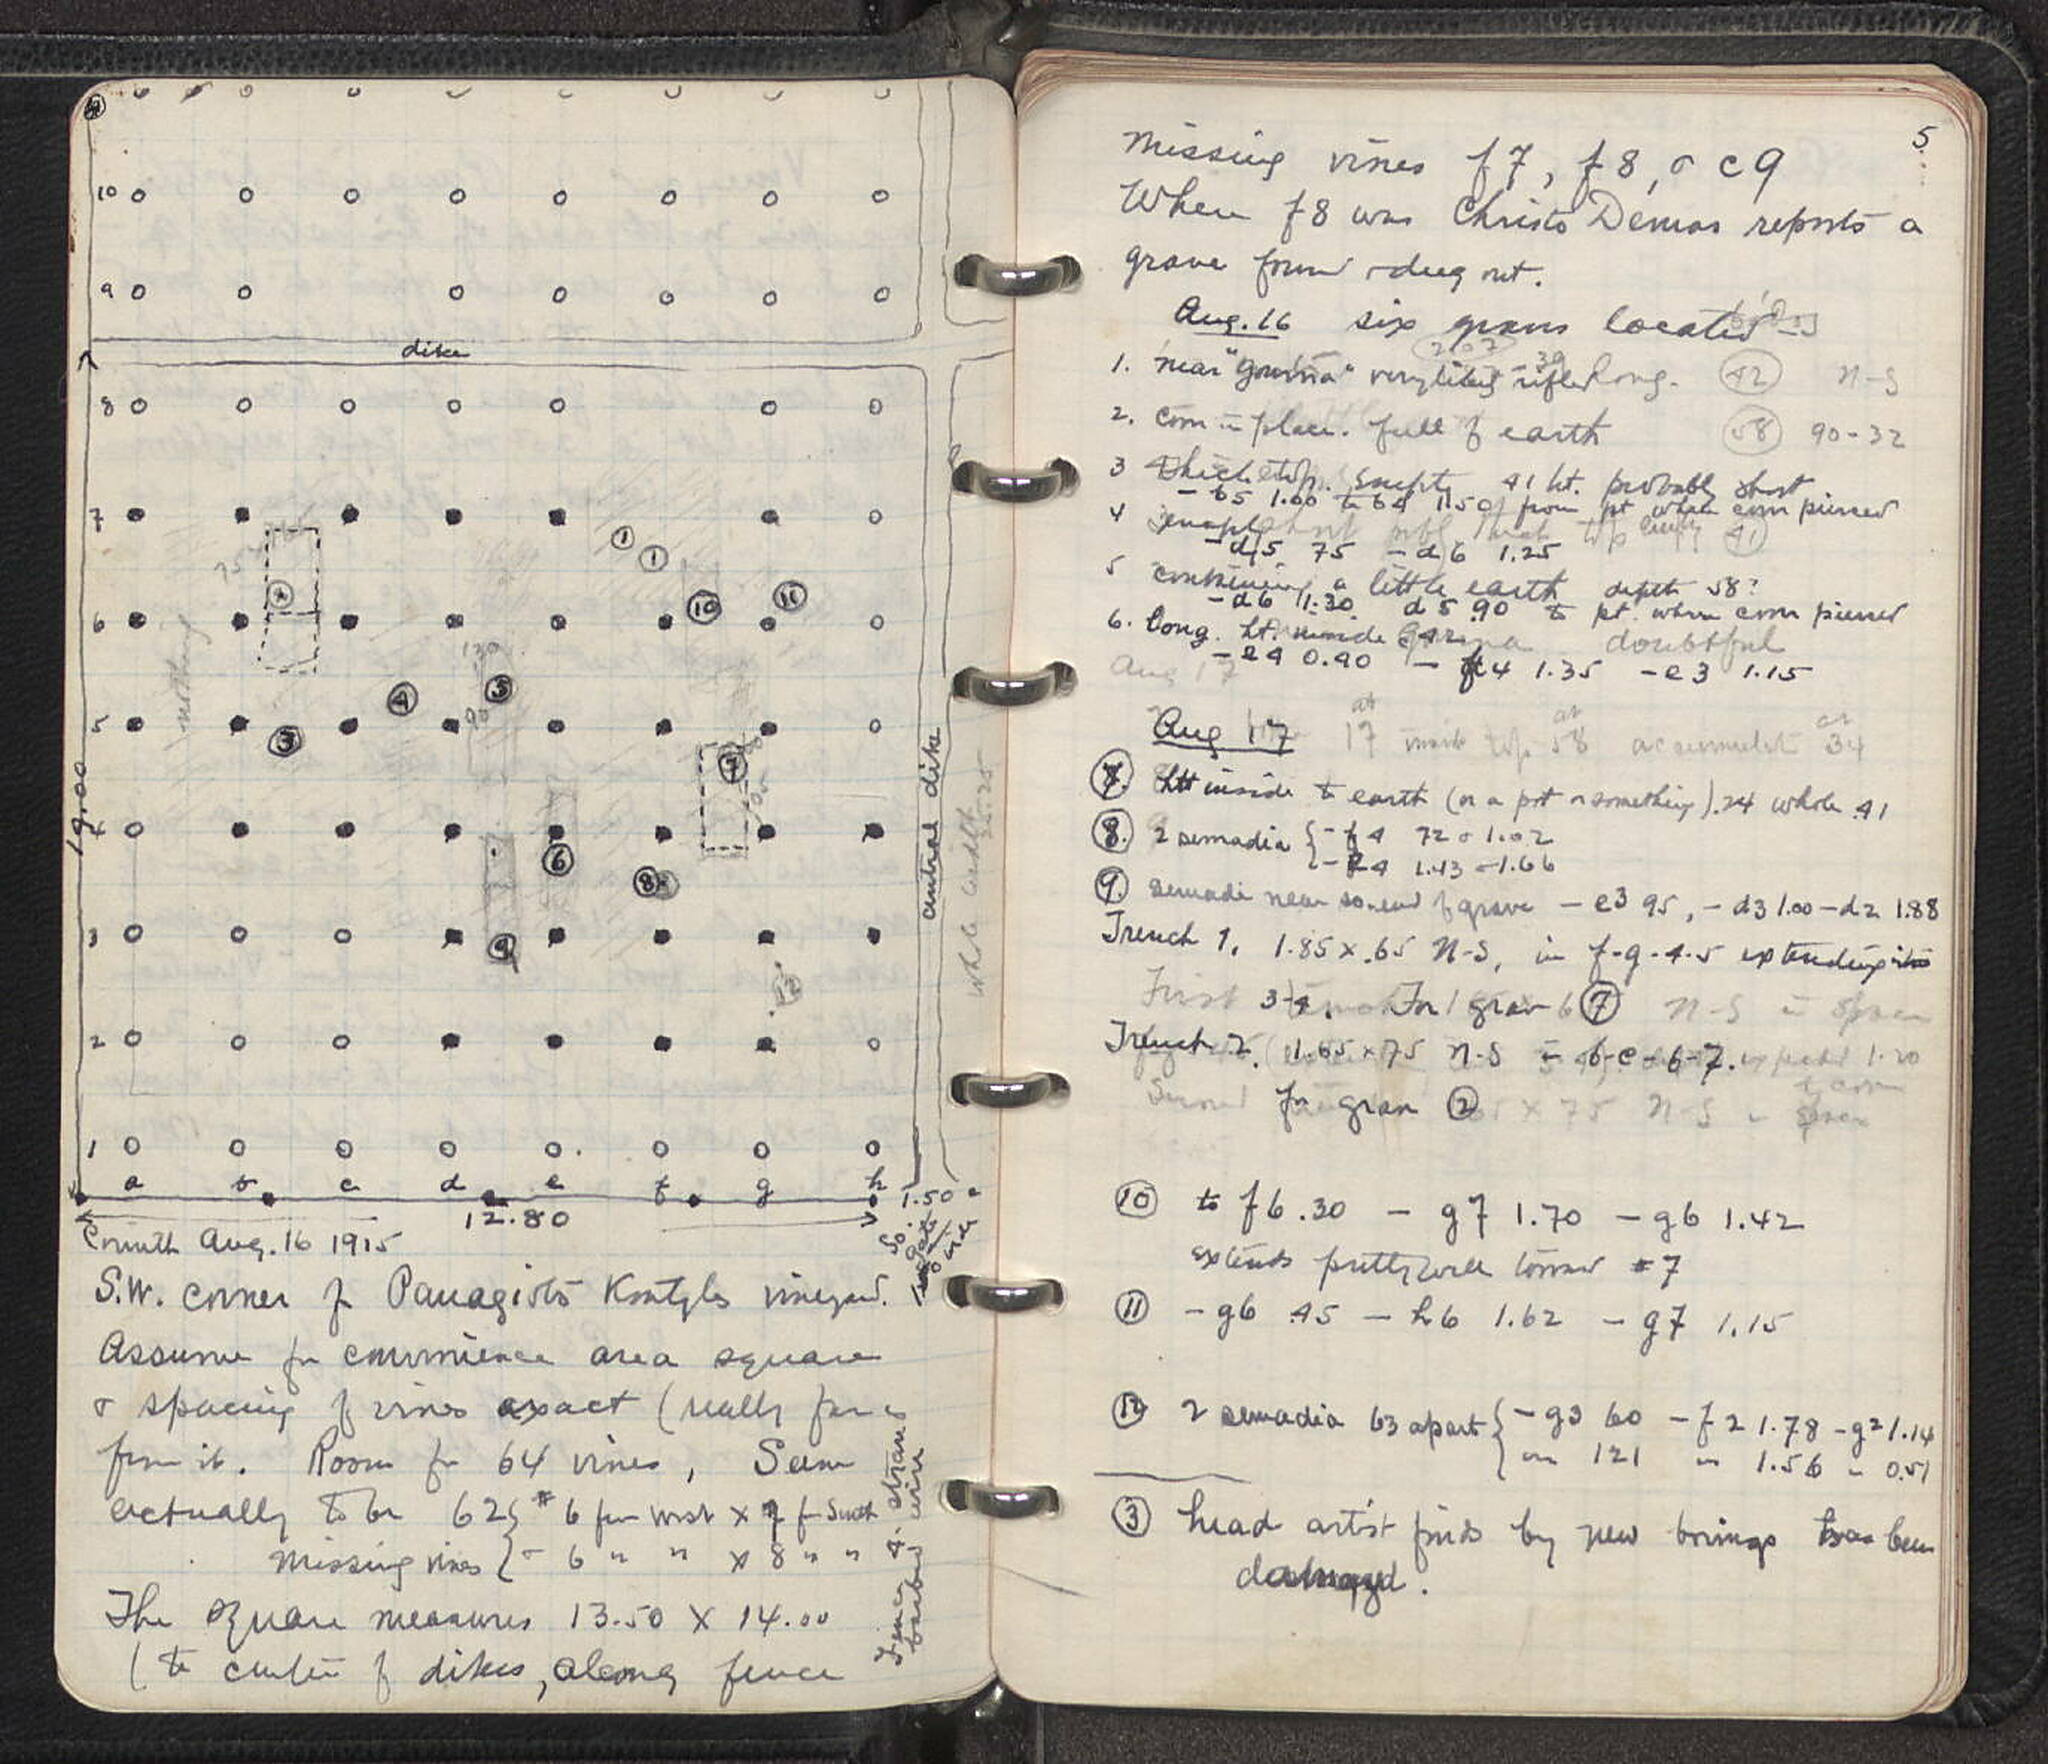 10
9
dike
8
7
1
1
10
11
6
nothing
120
4
5
90
5
3
7
14.00
central dike
4
6
8
3
9
12
2
1
a b c d e f g h
12.80
1.50
Corinth Aug. 16 1915
S.W. corner of Panagiotis vineyard.
Assume for convenience area square
& spacing of vines exact (really far is
from it. Room for 64 vines, Seem
actually to be 62 { # 6 from West x 7 f South
missing vines { - 6 " " x 8 " "
The square measures 13.50 x 14.00
(to center of dikes, along fence
Fence 4 strand
barbed wire
5
missing vines f7, f8, & c9
Where f8 was Christo Demas reports a
grave found & dug out.
Aug. 16 six graves located
1. near "gourna" very long. 42 N-S
2. corn in place. full of earth 58 90-32
3 thick top. empty 41 ht. probably short
- b5 1.00 to b4 1.50 from pt where corn pierced
4
- d5 75 - d6 1.25
5 containing a little earth depth 58?
- d6 1.30 d5 .90 to pt. where corn pierced
6. Long. ht. inside doubtful
- e4 0.40 - f4 1.35 - e3 1.15
Aug 17
Aug 17
7. ht inside to earth (or a pot or something) .24 whole .41
8. 2 semadia { - f4 72 & 1.02
- e4 1.43 - 1.66
9. semadi near so. end of grave - e3 95, - d3 1.00 - d2 1.88
Trench 1. 1.85 x .65 N-S, in f-g-4-5 extending
3-4. For grave 7
Trench 2. 1.65 x 75 N-S in b-c-6-7.
for grave 2
10 to f6 .30 - g7 1.70 - g6 1.42
extends pretty well toward #7
11 - g6 45 - h6 1.62 - g7 1.15
12 2 semadia 63 apart { - g3 60 - f2 1.78 - g2 1.14
" 121 " 1.56 " 0.51
3 head artist finds by new borings has been
damaged.